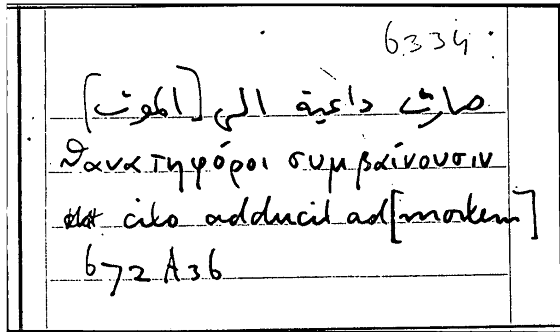 6334
صارت داعية الى [الموت]
θανατηφόροι συμβαίνουσιν
cito adducit ad [mortem]
672 A36